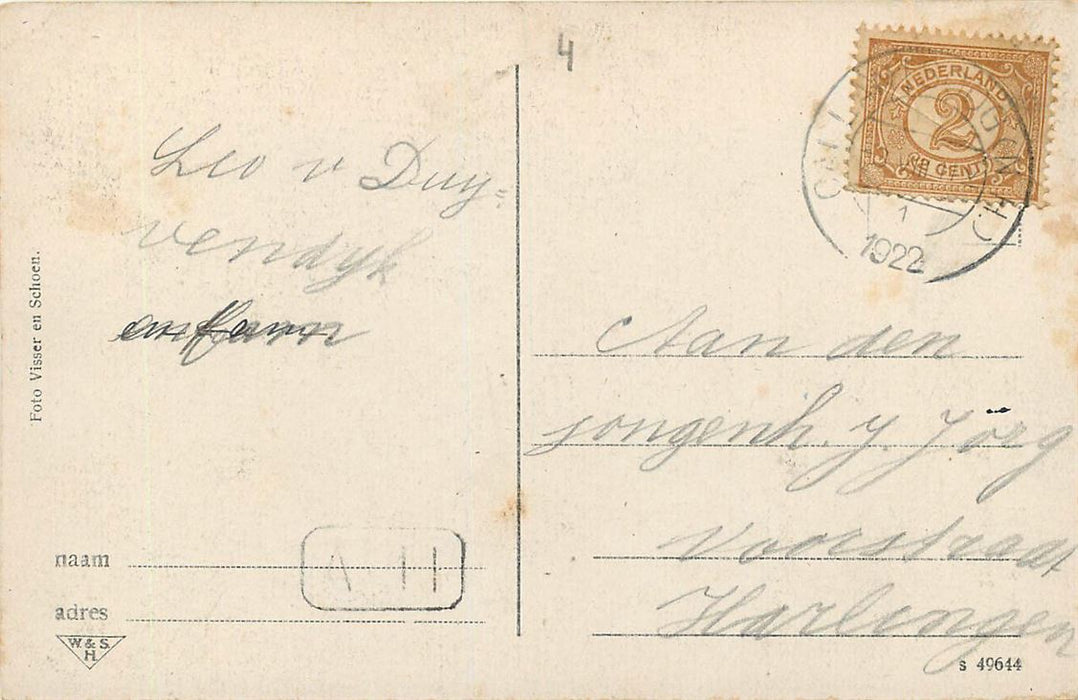 4
NEDERLAND
2
CENT
1
1922
Leo v Duy=
vendyk
en fam
Foto Visser en Schoen.
Aan den
jongenh. J. Jörg
Voorstraat
Harlingen
naam
adres
W. & S.
H.
s 49644